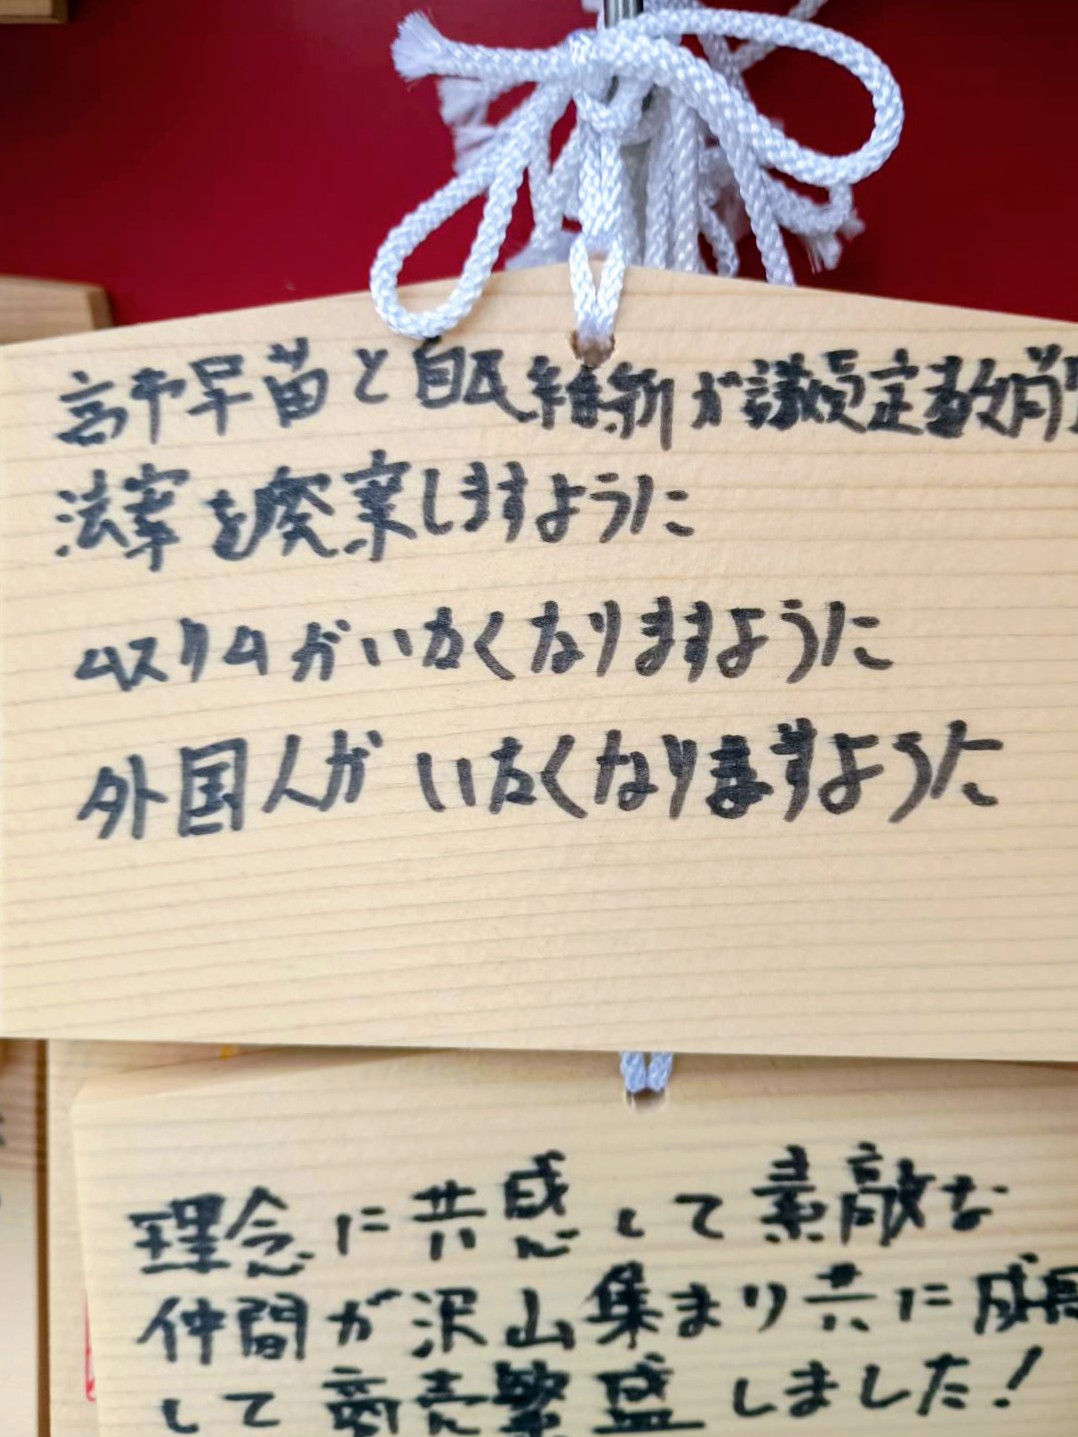 高市早苗と自民維新が議員定数削
法案を廃案しますように
ムスリムがいなくなりますように
外国人がいなくなりますように
理念に共感して素敵な
仲間が沢山集まり共に成長
して商売繁盛しました!